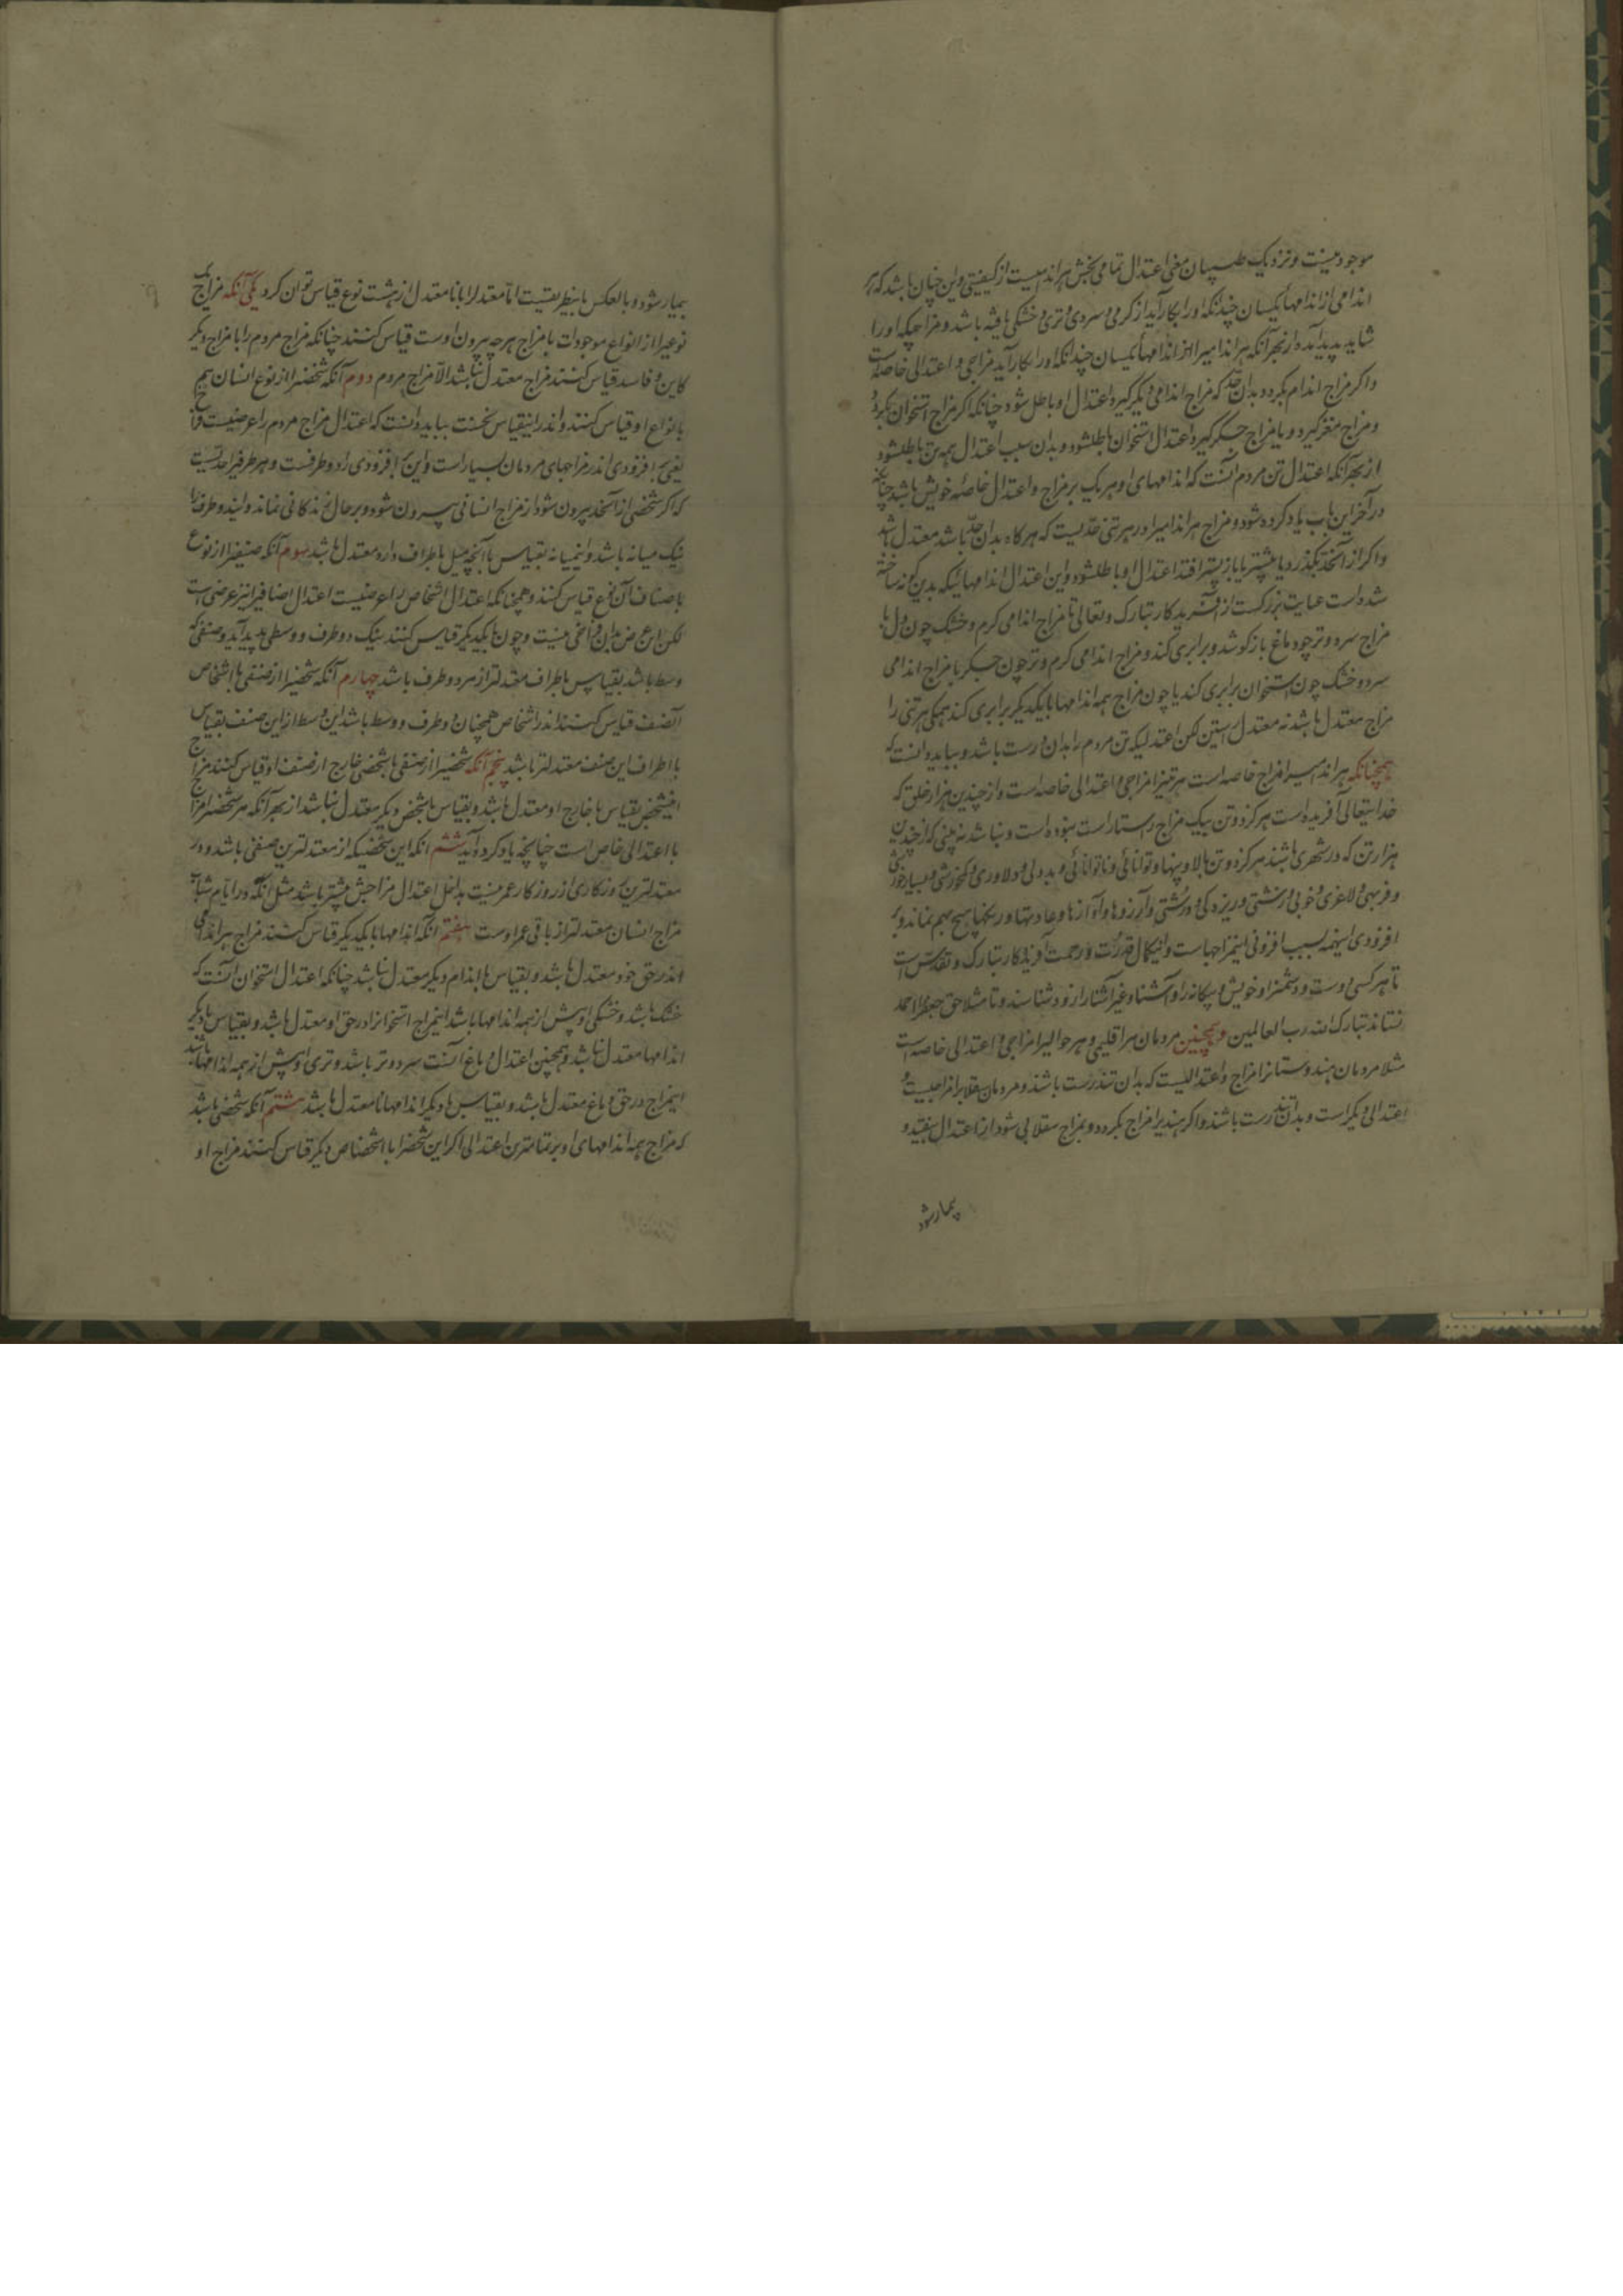 موجود نیست و نزدیک طبیبان معنی اعتدال تمامی بخش هر اندامیست از کیفیتی و این چنان باشد که هر
اندامی از اندامها یکسان چندانکه او را بکار آید از گرمی و سردی و تری و خشکی یافته باشد و مزاجیکه او را
شاید پدید آمده از بهر آنکه هر اندامیرا از اندامها یکسان چندانکه او را بکار آید مزاجی و اعتدالی خاصه است
و اگر مزاج اندام بگردد بدان حد که مزاج اندامی دیگر گیرد اعتدال او باطل شود چنانکه اگر مزاج استخوان بگردد
و مزاج مغز گیرد و یا مزاج جگر گیرد اعتدال استخوان باطلشود و بدان سبب اعتدال همه تن باطلشود
از بهر آنکه اعتدال تن مردم آنست که اندامهای او هر یک بر مزاج و اعتدال خاصه خویش باشد چنانکه
در آخر این باب یاد کرده شود و مزاج هر اندامیرا در هر تنی حدیست که هر گاه بدان حد باشد معتدل باشد
و اگر از آنحد بگذرد یا پیشتر یا باز پستر افتد اعتدال او باطلشود و این اعتدال اندامهائیکه بدین گونه ساخته
شده است عنایت بزرگست از آفریدگار تبارک و تعالی تا مزاج اندامی گرم و خشک چون دل با
مزاج سرد و تر چو دماغ باز کوشد و برابری کند و مزاج اندامی گرم و تر چون جگر با مزاج اندامی
سرد و خشک چون استخوان برابری کند یا چون مزاج همه اندامها با یکدیگر برابری کند همگی هر تنی را
مزاج معتدل باشد نه معتدل راستین لکن اعتدالیکه تن مردم را بدان درست باشد و بباید دانست که
همچنانکه هر اندامیرا مزاج خاصه است هر تنیرا مزاجی و اعتدالی خاصه است و از چندین هزار خلق که
خدایتعالی آفریده است هرگز دو تن بیک مزاج راستا راست نبوده است و نباشد نه بینی که از چندین
هزار تن که در شهری باشند هرگز دو تن ببالا و پهنا و توانائی و ناتوانائی و بددلی و دلاوری و کمخورشی و بسیار خورشی
و فربهی و لاغری و خوبی و زشتی و ریزدگی و درشتی و آرزوها و آوازها و عادتها و رنگها هیچ بهم نماند و بر
افزودی اینهمه بسبب افزونی اینمزاجهاست و اینکمال قدرت و رحمت آفریدگار تبارک و تقدس است
تا هر کسی دوست و دشمن و خویش و بیگانه را و آشنا و غیر آشنا را زود شناسند و تا مثلا حق جعفر را احمد
نستاند تبارک الله رب العالمین و همچنین مردمان هر اقلیمی و هر حوالیرا مزاجی و اعتدالی خاصه است
مثلا مردمان هندوستانرا مزاج و اعتدالیست که بدان تندرست باشند و مردمان سقلابرا مزاجیست و
اعتدالی دیگر است و بدان تندرست باشند و اگر هندیرا مزاج بگردد و بمزاج سقلابی شود از اعتدال بیفتد و
بیمار شود
۹
بیمار شود و بالعکس باینطریقست اما معتدلرا با نامعتدل از هشت نوع قیاس توان کرد یکی آنکه مزاج
نوعیرا از انواع موجودات با مزاج هر چه بیرون اوست قیاس کنند چنانکه مزاج مردم را با مزاج دیگر
کاین و فاسد قیاس کنند مزاج معتدل نباشد الا مزاج مردم دوم آنکه شخصیرا از نوع انسان هم
با نوع او قیاس کنند و اندر اینقیاس نخست بباید دانست که اعتدال مزاج مردم را عرضیست فراخ
یعنی افزودی اندر مزاجهای مردمان بسیار است و این افزودی را دو طرفست و هر طرفیرا حدیست
که اگر شخصی از آنحد بیرون شود از مزاج انسانی بیرون شود و بر حال زندگانی نماند و ایندو طرفرا
نیک میانه باشد و اینمیانه بقیاس با آنچه میل باطراف دارد معتدل باشد سوم آنکه صنفیرا از نوع
باصناف آن نوع قیاس کنند و همچنانکه اعتدال اشخاص را عرضیست اعتدال اصنافرا نیز عرضی است
لکن این عرض بدان فراخی نیست و چون با یکدیگر قیاس کنند نیک دو طرف و وسطی پدید آید و صنفی که
وسط باشد بقیاس باطراف معتدلتر از هر دو طرف باشد چهارم آنکه شخصیرا از صنفی با اشخاص
آنصنف قیاس کنند اندر اشخاص همچنان دو طرف و وسط باشد این وسط از این صنف بقیاس
با اطراف این صنف معتدلتر باشد پنجم آنکه شخصیرا از صنفی با شخصی خارج از صنف او قیاس کنند مزاج
اینشخص بقیاس با خارج او معتدل باشد و بقیاس با شخص دیگر معتدل نباشد از بهر آنکه هر شخصیرا مزاج
با اعتدالی خاص است چنانچه یاد کرده آید ششم آنکه این شخصیکه از معتدلترین صنفی باشد و در
معتدلترین روزگاری از روزگار عمر نیست بداخل اعتدال مزاجش بیشتر باشد مثل آنکه در ایام شباب
مزاج انسان معتدلتر از باقی عمر اوست هفتم آنکه اندامها با یکدیگر قیاس کنند مزاج هر اندامی
اندر حق خود معتدل باشد و بقیاس با اندام دیگر معتدل نباشد چنانکه اعتدال استخوان آنست که
خشک باشد و خشکی او بیش از همه اندامها باشد اینمزاج استخوانرا در حق او معتدل باشد و بقیاس با دیگر
اندامها معتدل نباشد و همچنین اعتدال دماغ آنست سرد و تر باشد و تری او بیش از همه اندامها باشد
اینمزاج در حق دماغ معتدل باشد و بقیاس با دیگر اندامها نامعتدل باشد هشتم آنکه شخصی باشد
که مزاج همه اندامهای او بر تمامترین اعتدالی اگر این شخص را با اشخاص دیگر قیاس کنند مزاج او